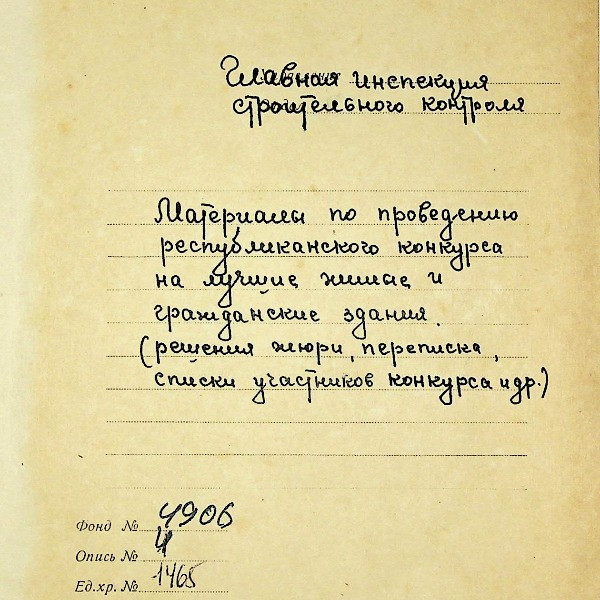 Главная инспекция
строительного контроля
Материалы по проведению
республиканского конкурса
на лучшие жилые и
гражданские здания.
(решения жюри, переписка,
списки участников конкурса и др.)
Фонд № 4906
Опись № 4
Ед.хр. № 1465